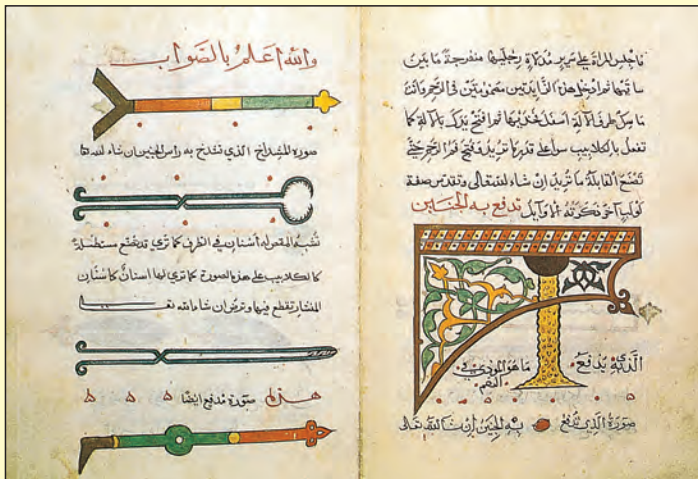 فاجلس المراة علي سرير مدلاة رجليها منفرجة ما بين
ساقيها ثم ادخل هذا الزايدتين مضمومتين في الرحم وانت
ماسك طرف الالة اسفل فخذيها ثم افتح يدك بالالة كما
تفعل بالكلاليب سوا علي قدر ما تريد من فتح فم الرحم حتي
تصنع القابلة ما تريد ان شاء الله تعالي وتقدس صفة
لولب اخر ذكرته الاوايل
تدفع به الجنين
الذي يدفع
ما هو المؤدي في
صورة الذي تدفع به الجنين ان شا الله تعالي
والله اعلم بالصواب
صورة المشداخ الذي تشدخ به راس الجنين ان شاء الله
تشبه المقص له اسنان في الطرف كما تري قد تصنع مستطيلة
كالكلاليب علي هذه الصورة كما تري لها اسنان كاسنان
المنشار تقطع بها وترض ان شاء الله تعالي
هذه صورة مدفع ايضا